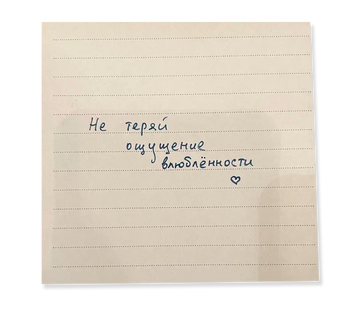 Не теряй
ощущение
влюблённости